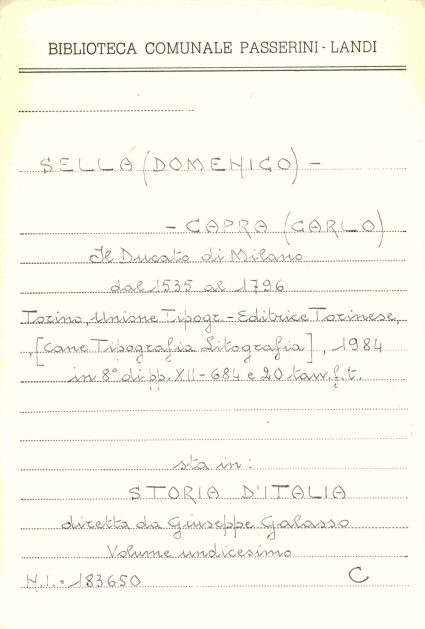 BIBLIOTECA COMUNALE PASSERINI-LANDI
SELLA (DOMENICO) -
- CAPRA (CARLO)
Il Ducato di Milano
dal 1535 al 1796
Torino, Unione Tipogr. - Editrice Torinese,
, [Cane Tipografia Litografia], 1984
in 8° di pp. XII - 684 e 20 tavv. f. t.
sta in:
STORIA D'ITALIA
diretta da Giuseppe Galasso
Volume undicesimo
N.I. • 183650 C